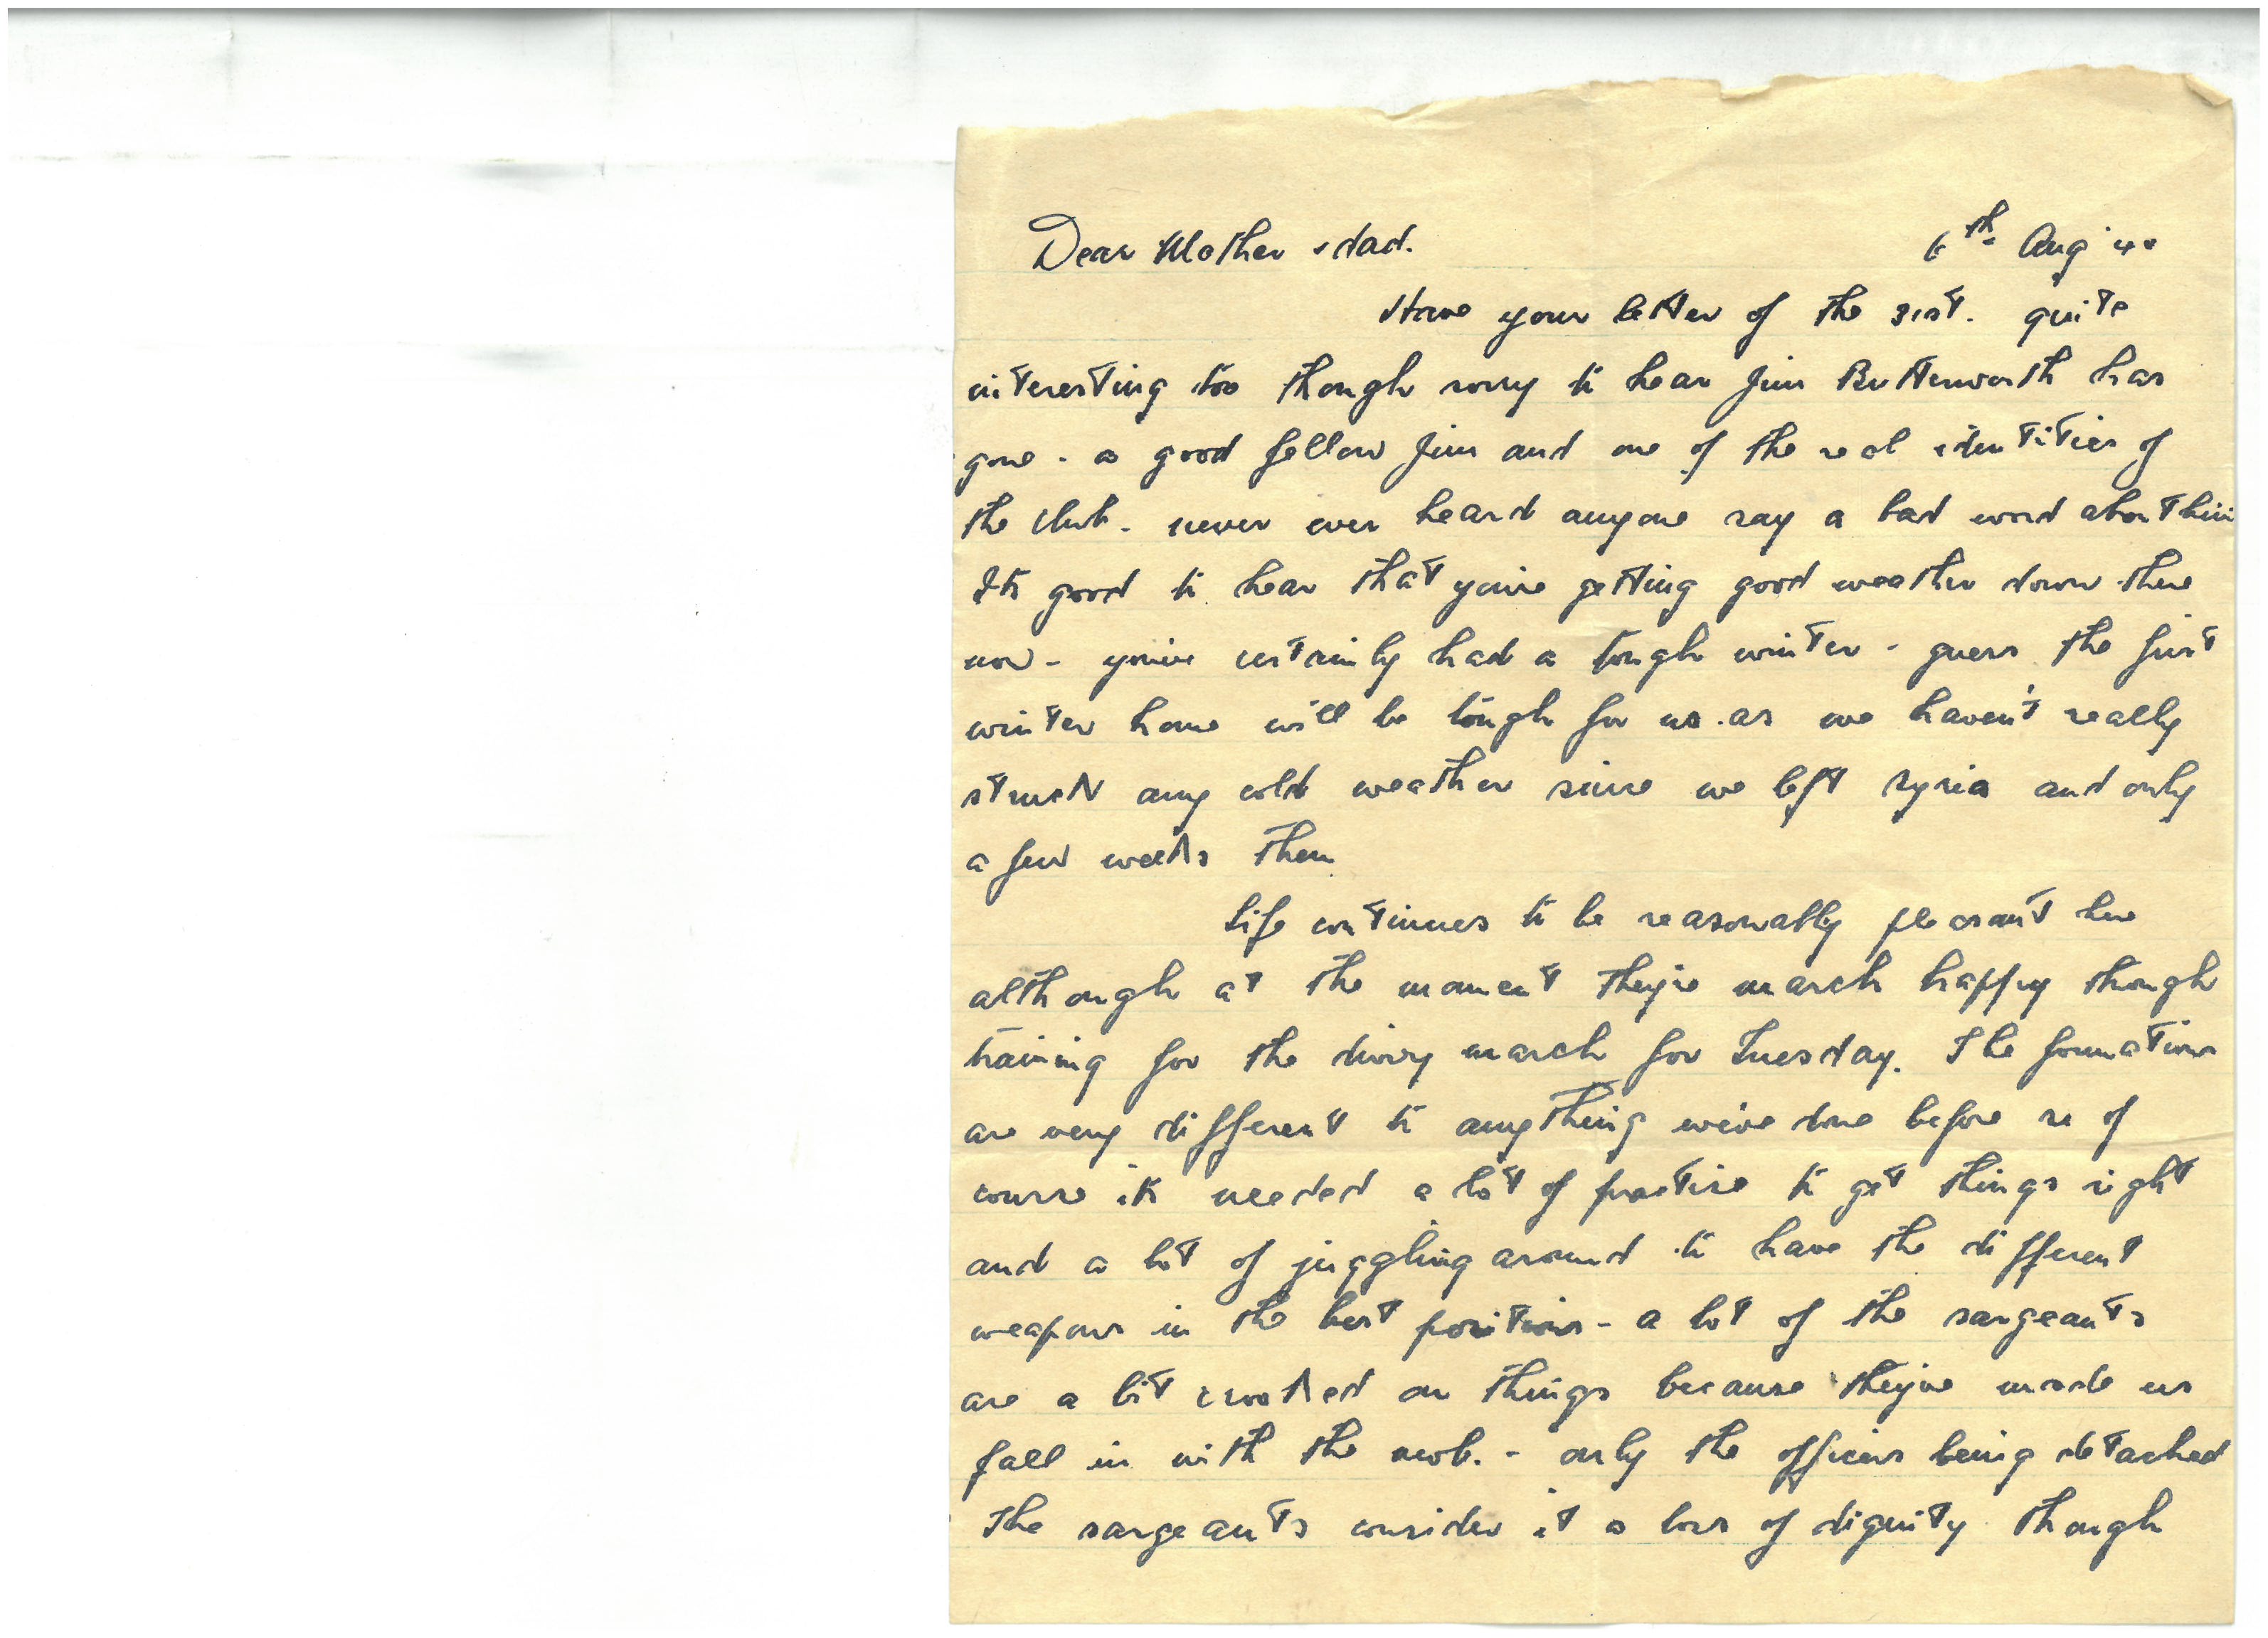 Dear Mother & dad. 6th Aug 44
Have your letter of the 31st. quite
interesting too though sorry to hear Jim Butterworth has
gone - a good fellow Jim and one of the real identities of
the club - never ever heard anyone say a bad word about him
Its good to hear that you're getting good weather down there
now - you've certainly had a tough winter - guess the first
winter home will be tough for us as we haven't really
struck any cold weather since we left Syria and only
a few weeks then
Life continues to be reasonably pleasant here
although at the moment they're march happy though
training for the divvy march for Tuesday. The formations
are very different to anything we've done before so of
course its needed a lot of practise to get things right
and a lot of juggling around to have the different
weapons in the best positions - a lot of the sargeants
are a bit crooked on things because they've made us
fall in with the mob. - only the officers being detached
The sargeants consider it a loss of dignity though